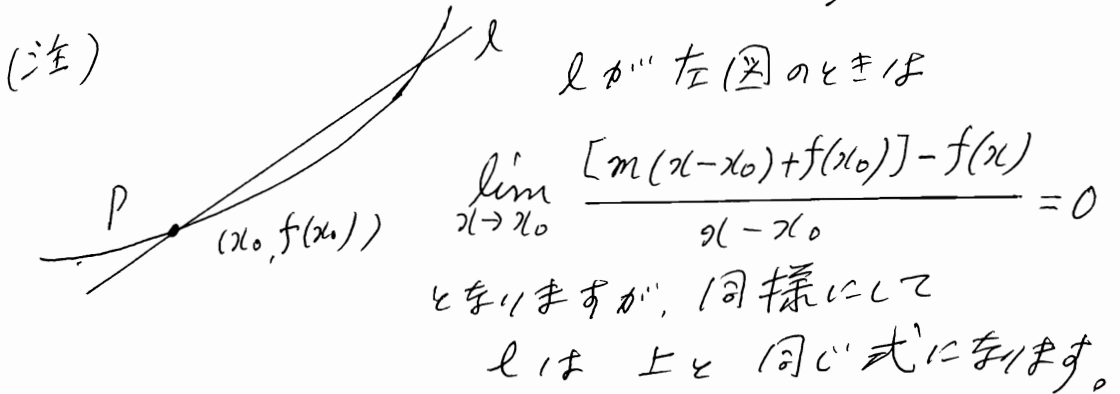 (注)
l
P
(x₀, f(x₀))
lが左図のときは
lim_{x→x₀} \frac{[m(x-x₀)+f(x₀)]-f(x)}{x-x₀} = 0
となりますが、同様にして
lは 上と 同じ式になります。